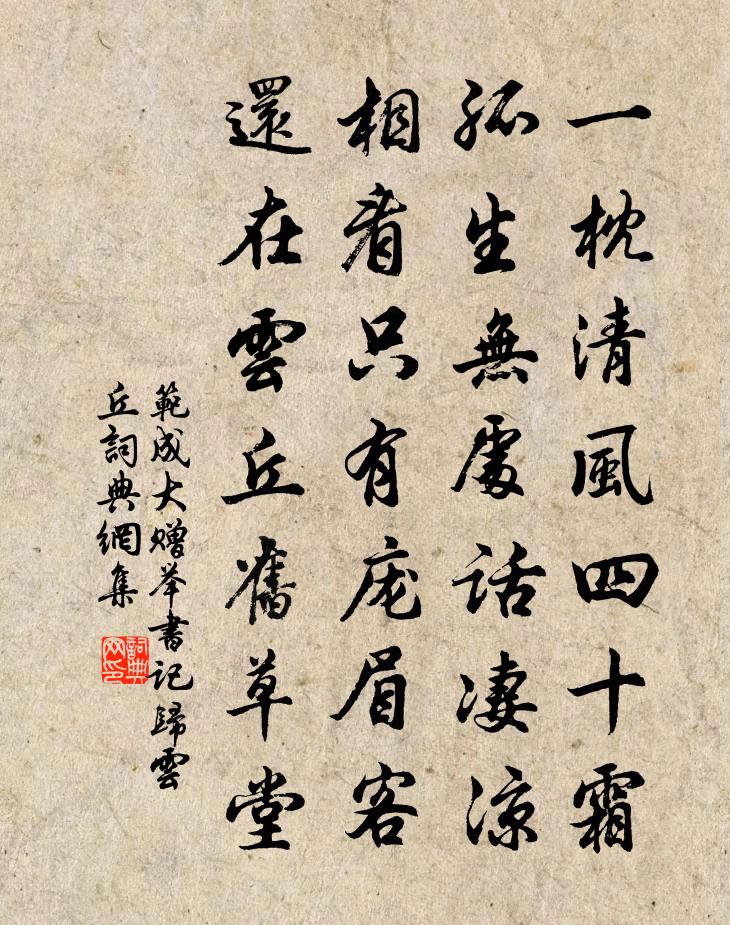 一枕清風四十霜
孤生無處話淒涼
相看只有庞眉客
還在雲丘舊草堂
範成大赠举書記歸雲
丘詞典網集
詞典
网印